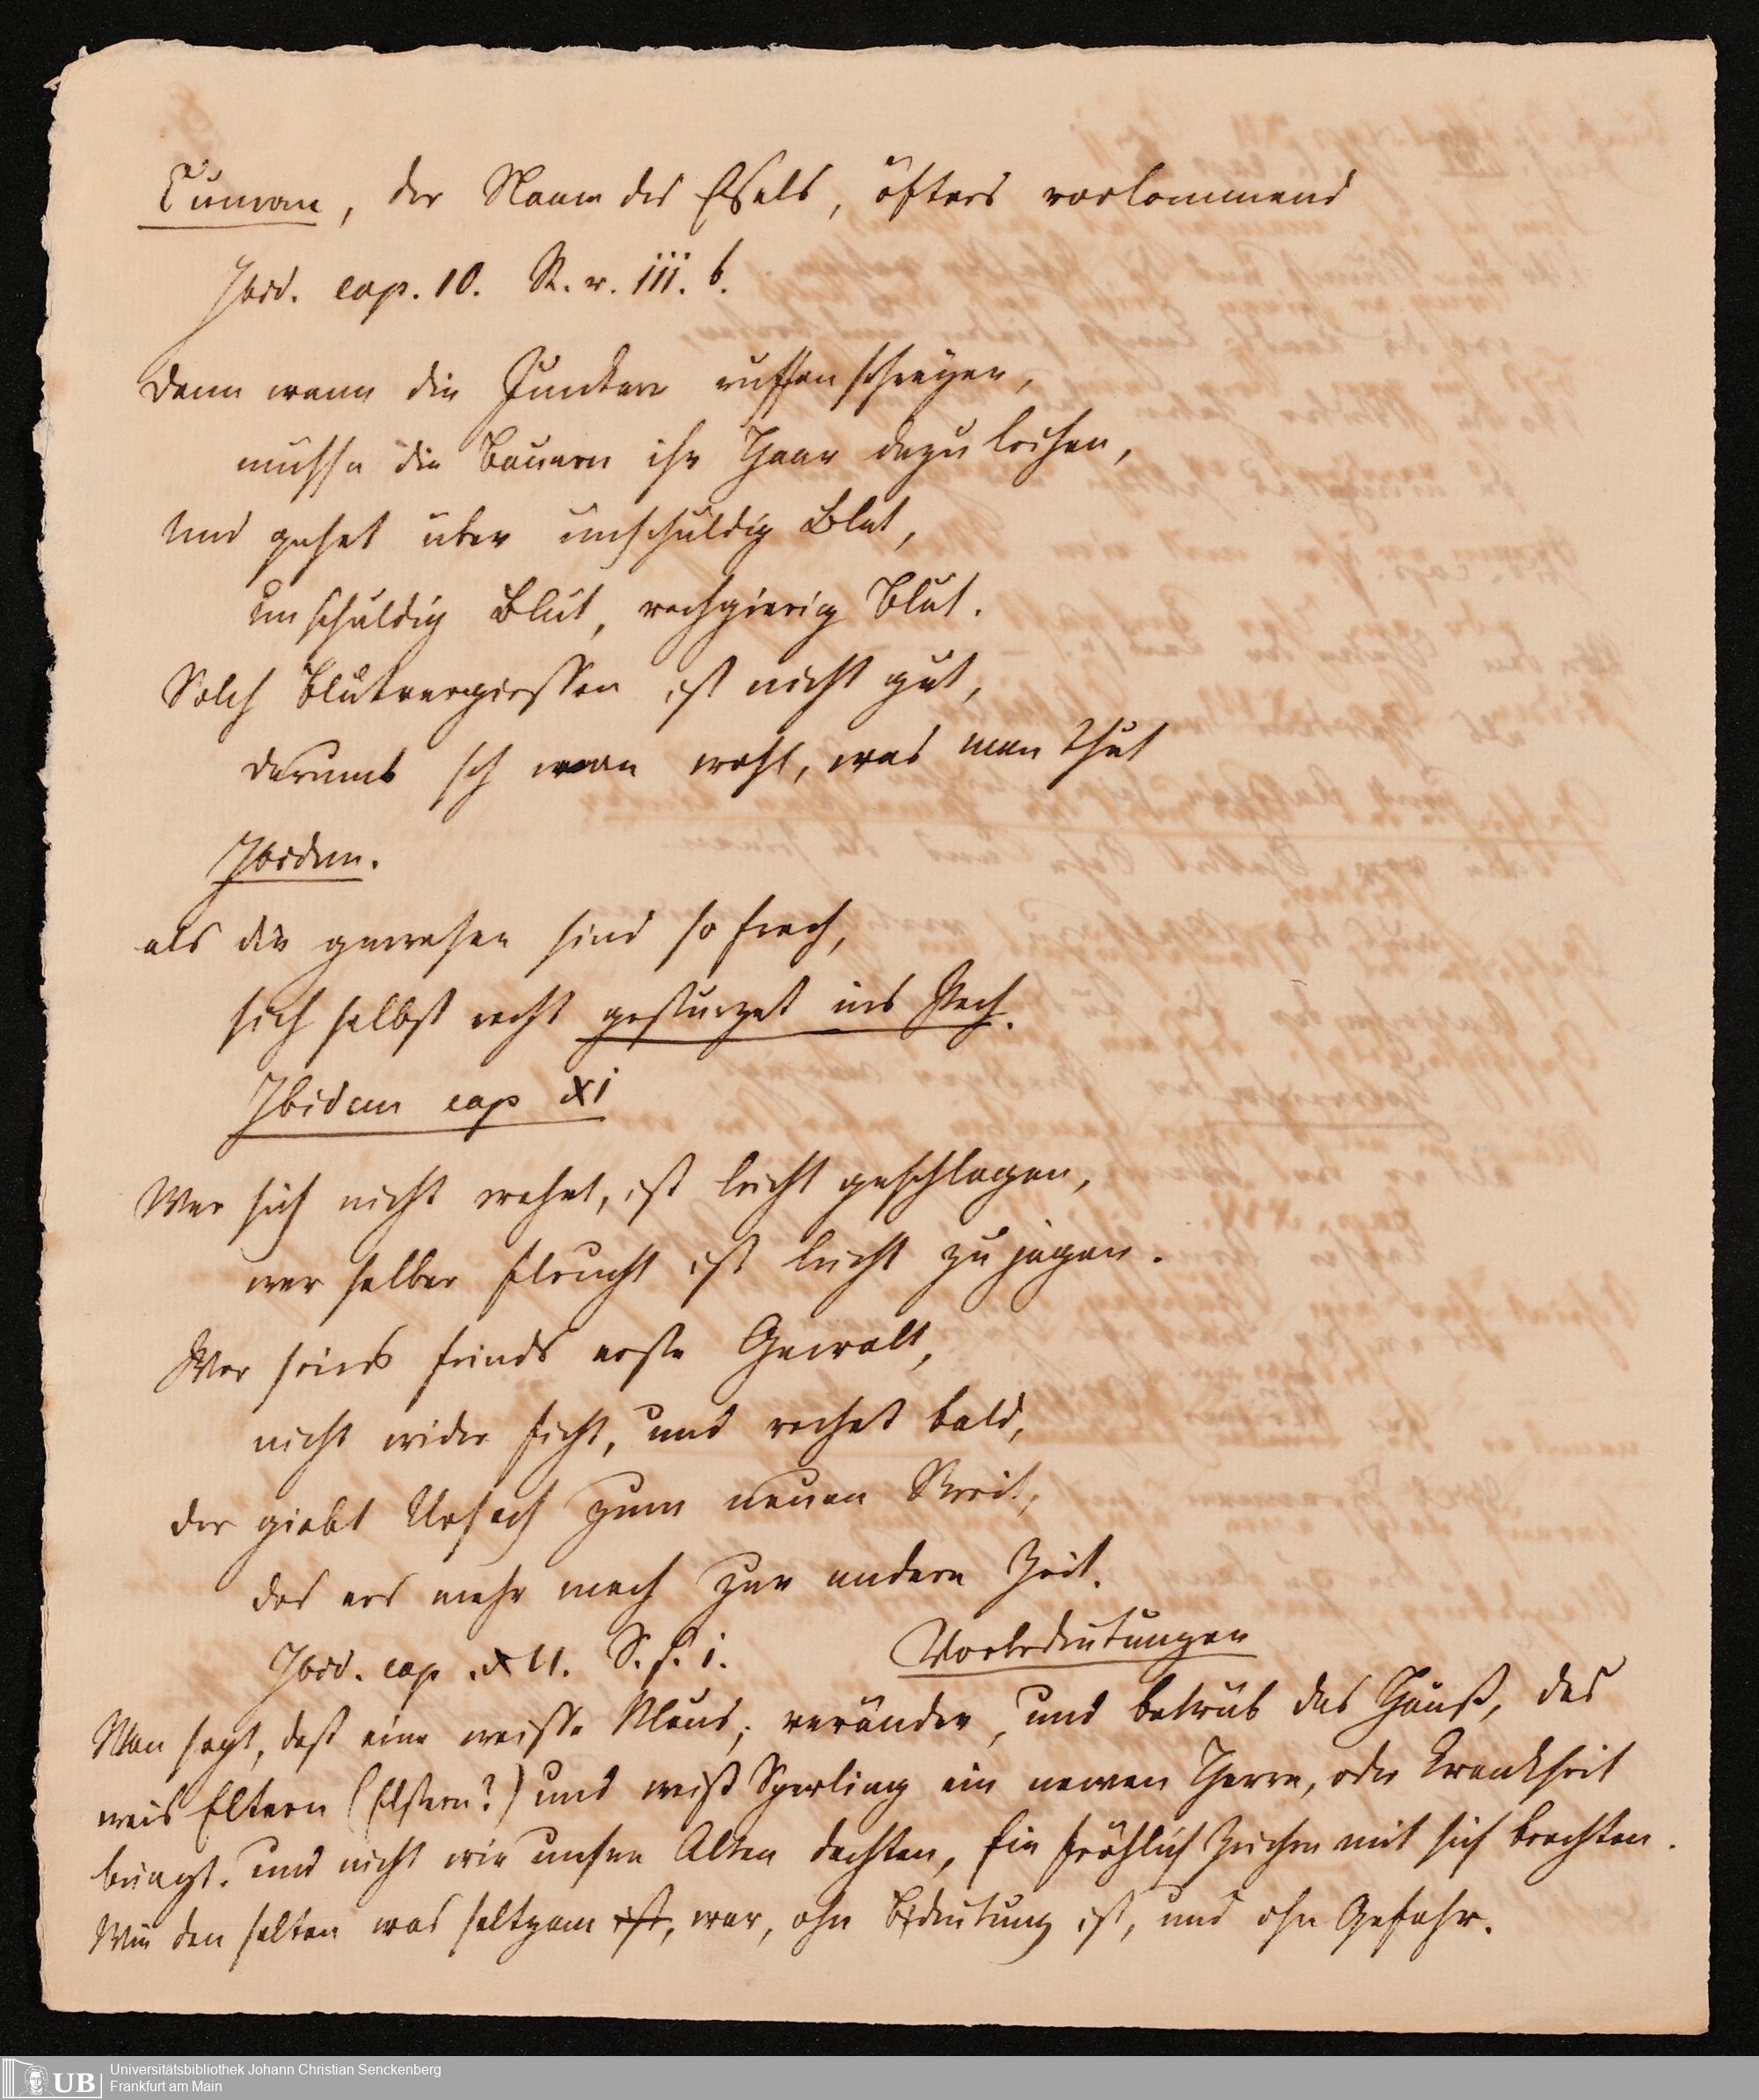 Cuman, der Name des Esels, öfters vorkommend
Ibid. cap. 10. R. r. iii. b.
denn wann die Junckern ruffen schreyen,
müsse die Bauern ihr Haar dazu leihen,
Und gehet über unschuldig Blut,
unschuldig Blut, rachgierig Blut.
Solch Blutvergiessen ist nicht gut,
darumb seh man wohl, was man thut
Ibidem.
als die gewesen sind so frech,
sich selbst recht gesturzet ins Pech.
Ibidem cap XI
Wer sich nicht wehret, ist leicht geschlagen,
wer selber fleucht ist leicht zu jagen.
Wer seines feinds erste Gewalt,
nicht wider ficht, und rechet bald,
der giebt Ursach zum neuen Streit,
das ers mehr mach zur andern Zeit.
Ibid. cap. XII. S. s. i. Vorbedeutungen
Man sagt, dass eine weisse Maus, veränder, und betrüb das Hauß, das
weis Eltern (Elstern?) und weiß Sperling ein newen Herrn, oder Krankheit
bringt. und nicht wie unsere Alten dachten, Ein fröhlich Zeichen mit sich brachten.
Wie den selten was seltzam ist, war, ohn Bedeutung ist, und ohn Gefahr.
UB Universitätsbibliothek Johann Christian Senckenberg
Frankfurt am Main